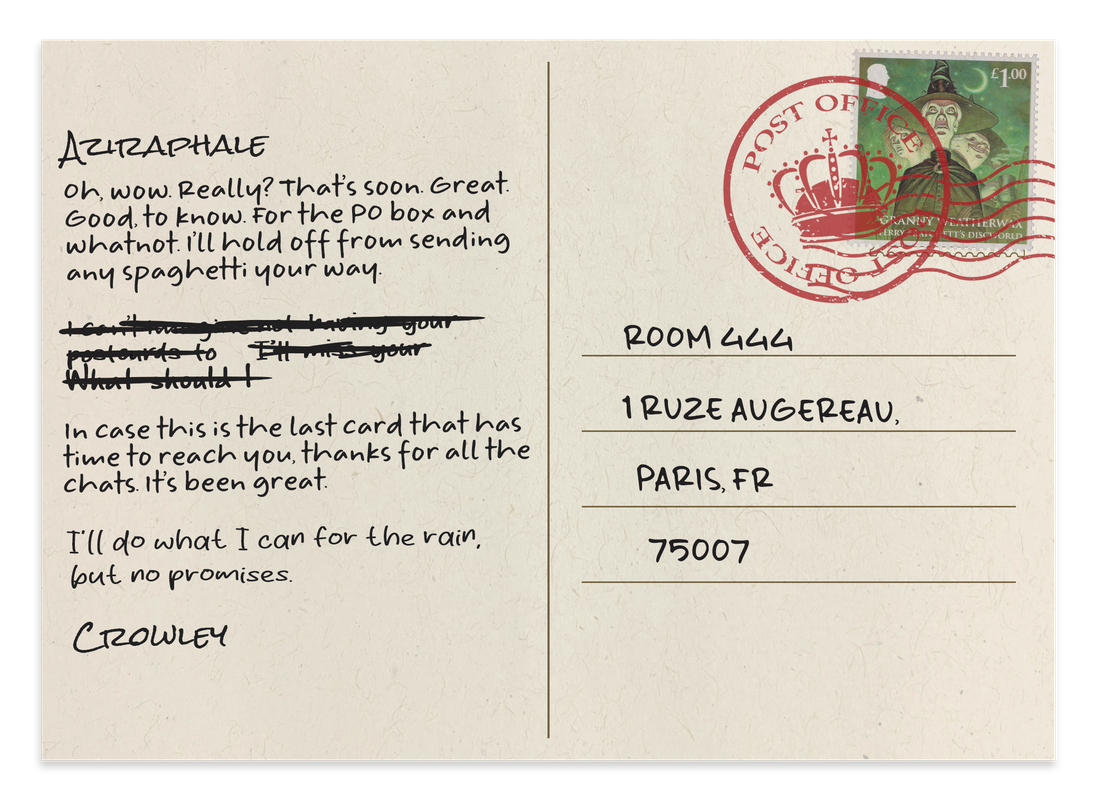 AZIRAPHALE
Oh, wow. Really? That's soon. Great.
Good, to know. For the PO box and
whatnot. I'll hold off from sending
any spaghetti your way.
I can't imagine not having your
postcards to I'll miss your
What should I
In case this is the last card that has
time to reach you, thanks for all the
chats. It's been great.
I'll do what I can for the rain,
but no promises.
CROWLEY
£1.00
GRANNY WEATHERWAX
TERRY PRATCHETT'S DISCWORLD
POST OFFICE
POST OFFICE
ROOM 444
1 RUZE AUGEREAU,
PARIS, FR
75007